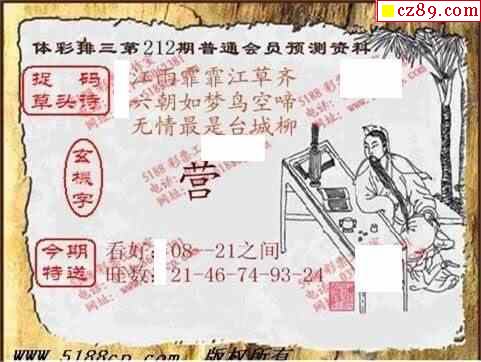 cz89.com
体彩排三第212期普通会员预测资料
捉 码
草头诗
江雨霏霏江草齐
六朝如梦鸟空啼
无情最是台城柳
玄机字
营
今期
特送
看好：08--21之间
旺数：21-46-74-93-24
www.5188cp.com 版权所有